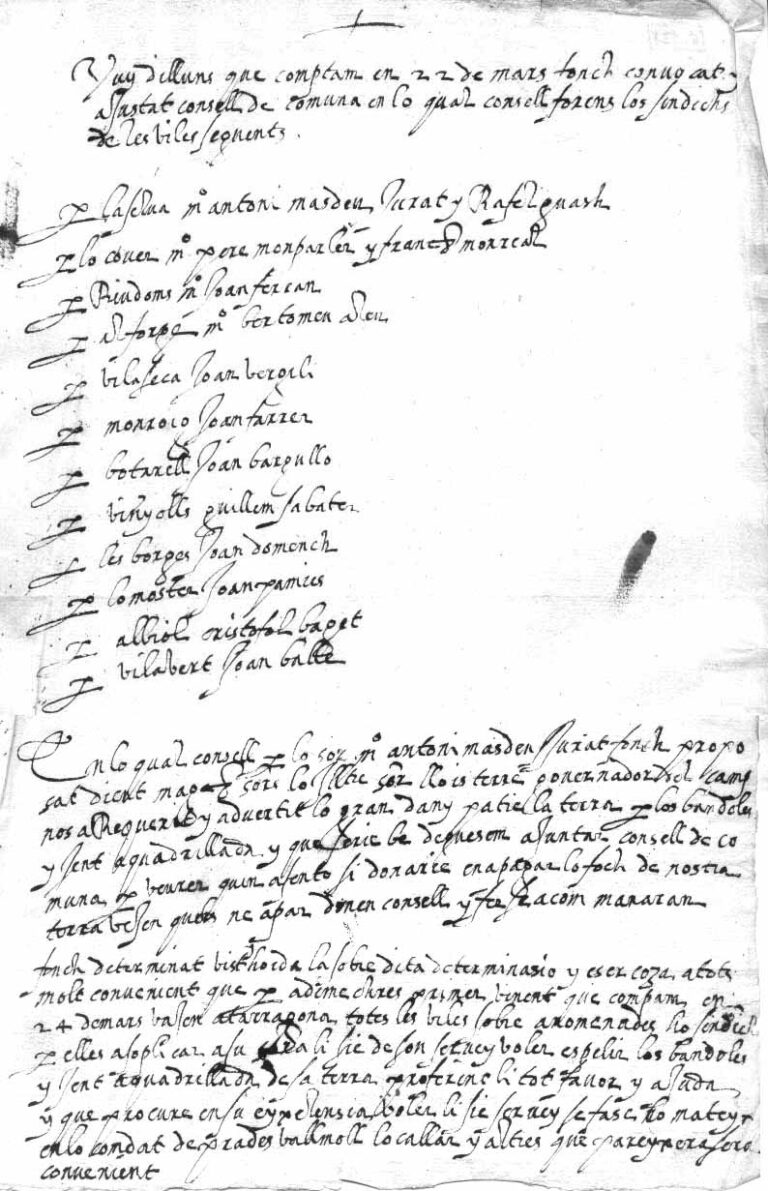 Vuy dilluns que comptam en 22 de mars fonch convocat y
aJustat consell de comuna en lo qual consell foren los sindichs
de les viles seguents.
p laselva mº antoni masdeu Jurat y Rafel guash
p lo cover mº pere monparler y franch monreal
p Riudoms mº Joan fercan
p alforge mº bertomeu
p vilaseca Joan vergili
p monroio Joan farrer
p botarell Joan bargullo
p vinyolls guillem sabater
p les borges Joan domench
p lomoster Joan pamies
p albiol cristofol baget
p vilavert Joan balle
En lo qual consell p lo sor mº antoni masdeu Jurat fonch propo
sat dient sors lo Illtre sor llois terre governador del camp
nos a Requerit y advertit lo gran dany patie lla terra p los bandoles
y Jent aquadrillada y que serie be deguesem aJuntar consell de co
muna p veurer quin asento si donarie en apagar lo foch de nostra
terra veJen quels ne apar donen consell y se fara com manaran
fonch determinat vist hoida la sobre dita determinasio y eser coza a tots
molt convenient que p adimecures primer vinent que comptam en
24 de mars vaJen a tarragona totes les viles sobre anomenades ho sindich
p elles a soplicar a su li sie de son servey voler espelir los bandoles
y Jent aquadrillada de sa terra proferinli tot favor y aJuda
y que procure en su eyxelensia voler li sie servey se fase ho mateyx
en lo condat de prades vallmoll lo callar y altres que pareyxera sera
convenient